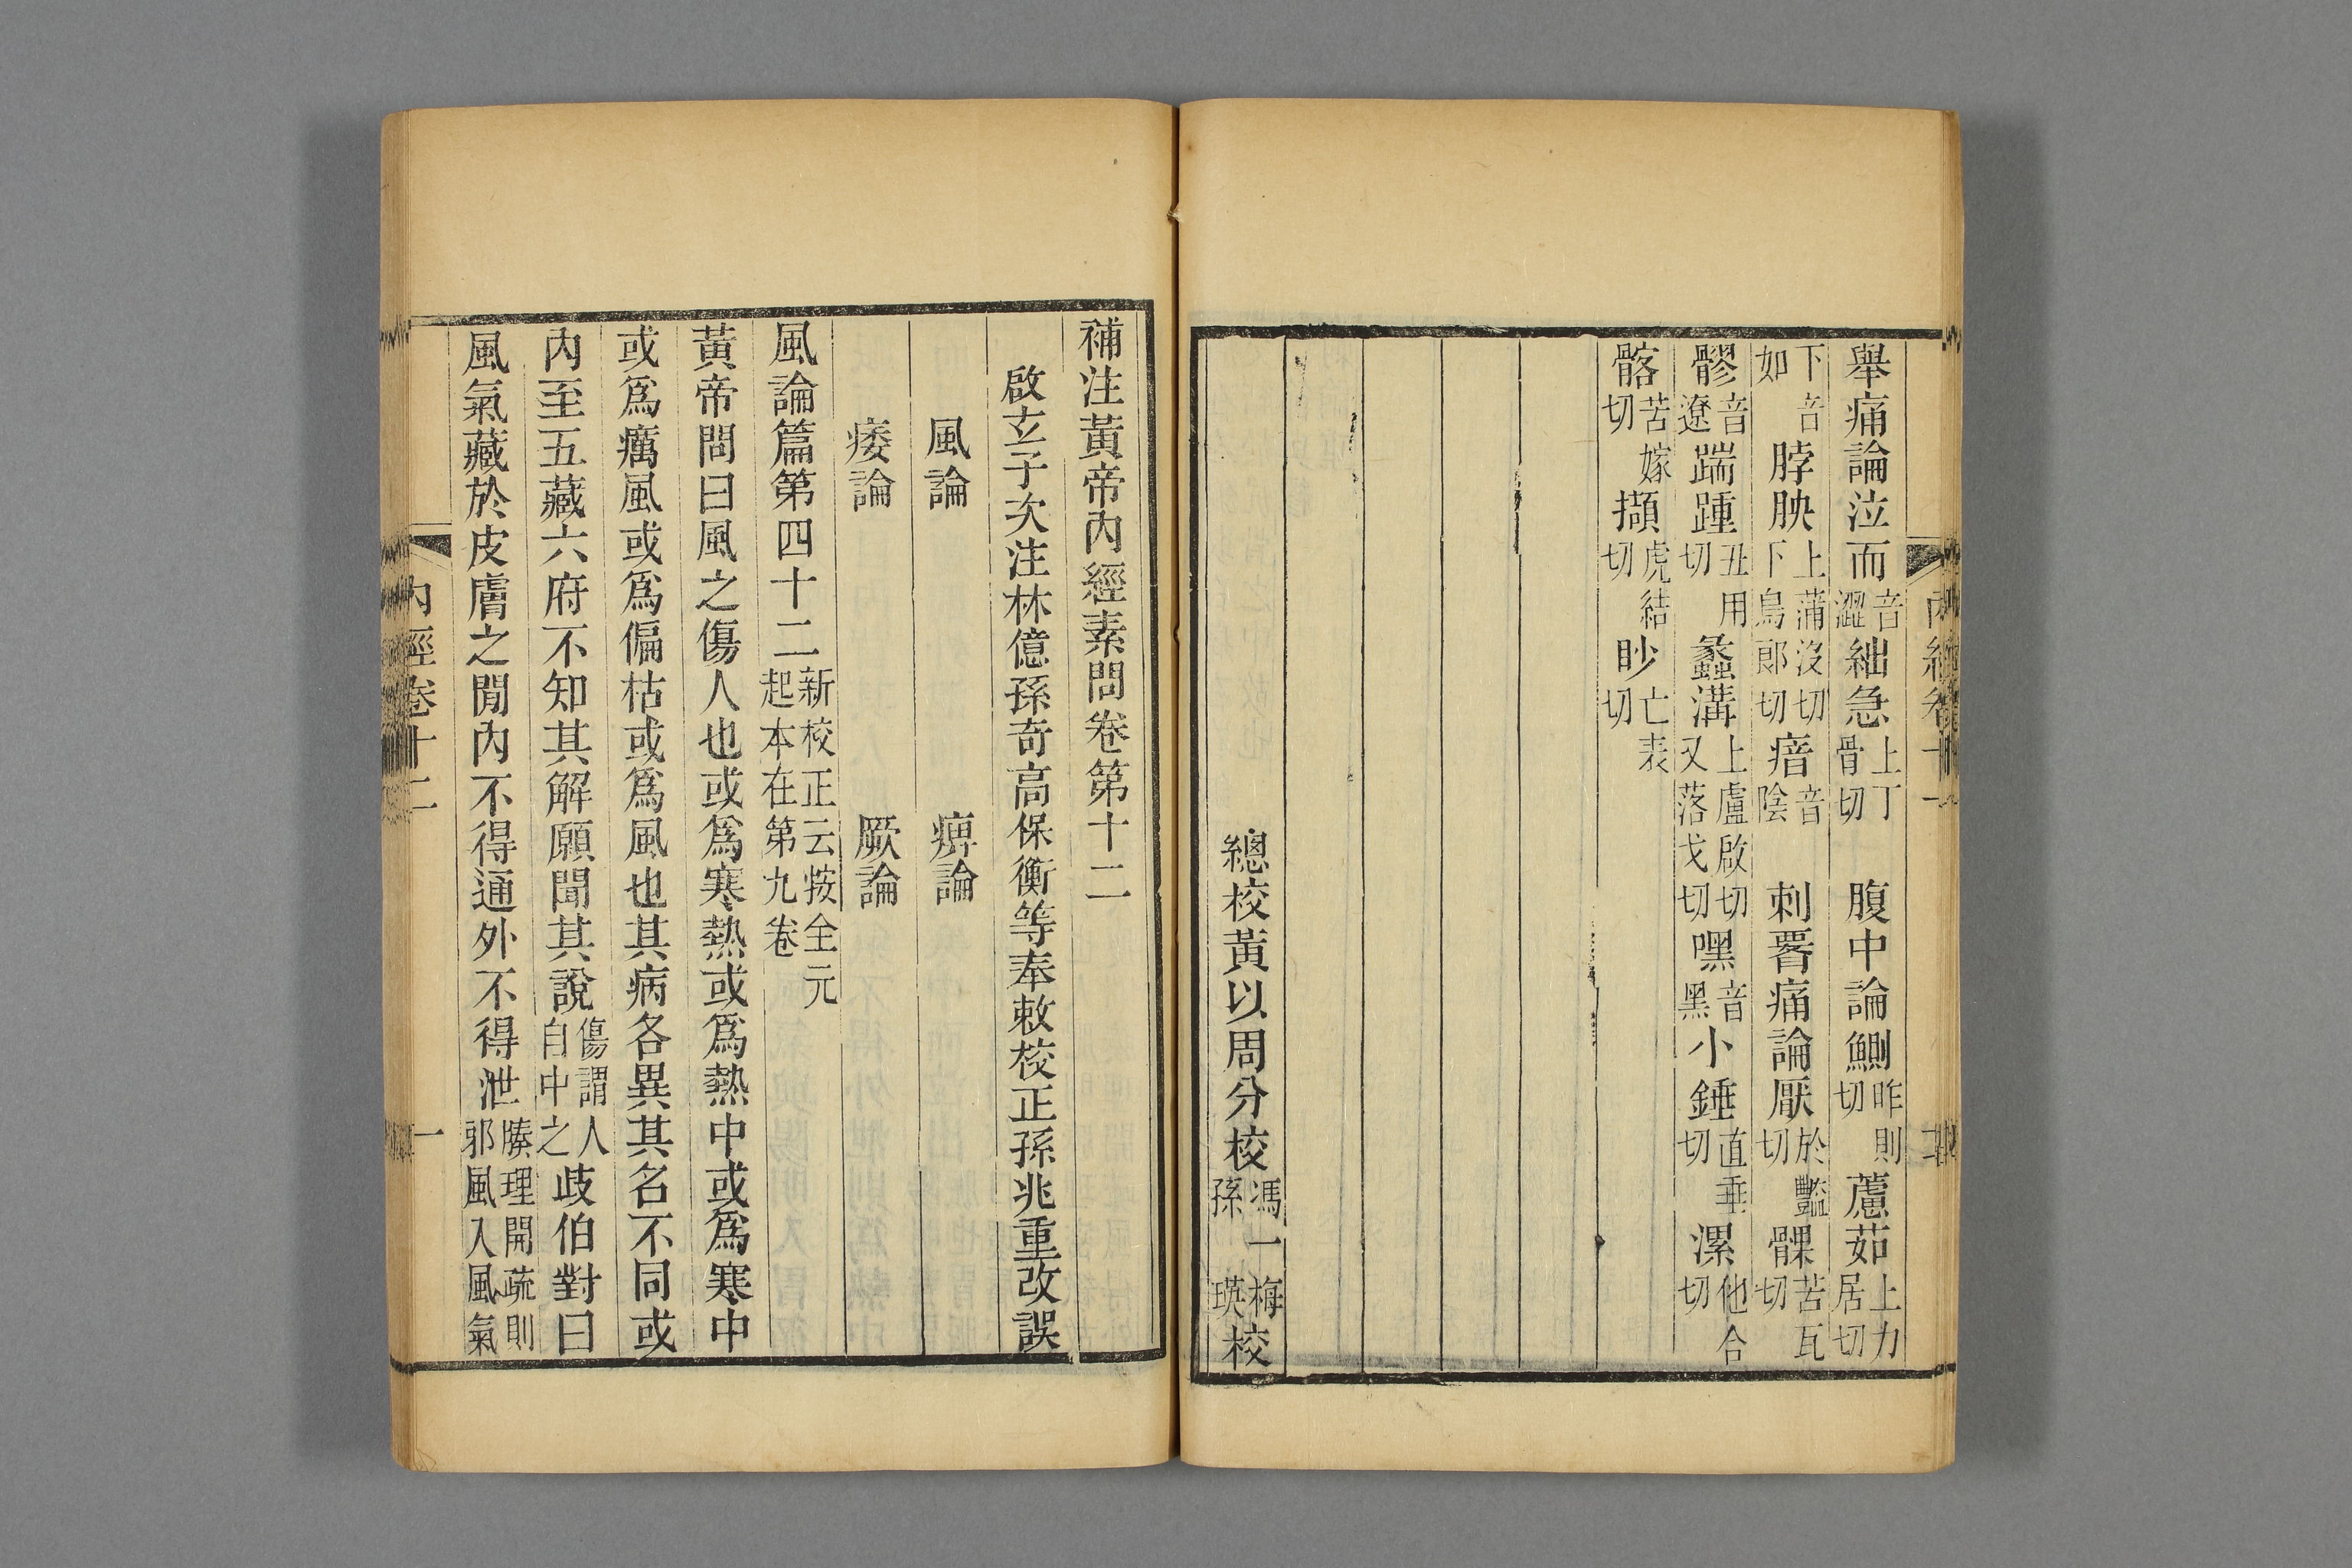 舉痛論泣而音澀絀急上丁骨切 腹中論鰂昨則切藘茹上力居切
下音如 脖胦上蒲沒切下烏郎切瘖音陰 刺腰痛論厭於豔切髁苦瓦切
髎音遼踹踵丑用切蠡溝上盧啟切又落戈切嘿音黑小錘直垂切漯他合切
髂苦嫁切擷虎結切䏚亡表切
總校黃以周分校馮一梅孫瑛校
內經卷十一
補注黃帝內經素問卷第十二
啟玄子次注林億孫奇高保衡等奉敕校正孫兆重改誤
風論 痹論
痿論 厥論
風論篇第四十二新校正云按全元起本在第九卷
黃帝問曰風之傷人也或爲寒熱或爲熱中或爲寒中
或爲癘風或爲偏枯或爲風也其病各異其名不同或
內至五藏六府不知其解願聞其說傷謂人自中之岐伯對曰
風氣藏於皮膚之閒內不得通外不得泄腠理開疏則邪風入風氣
內經卷十二
一